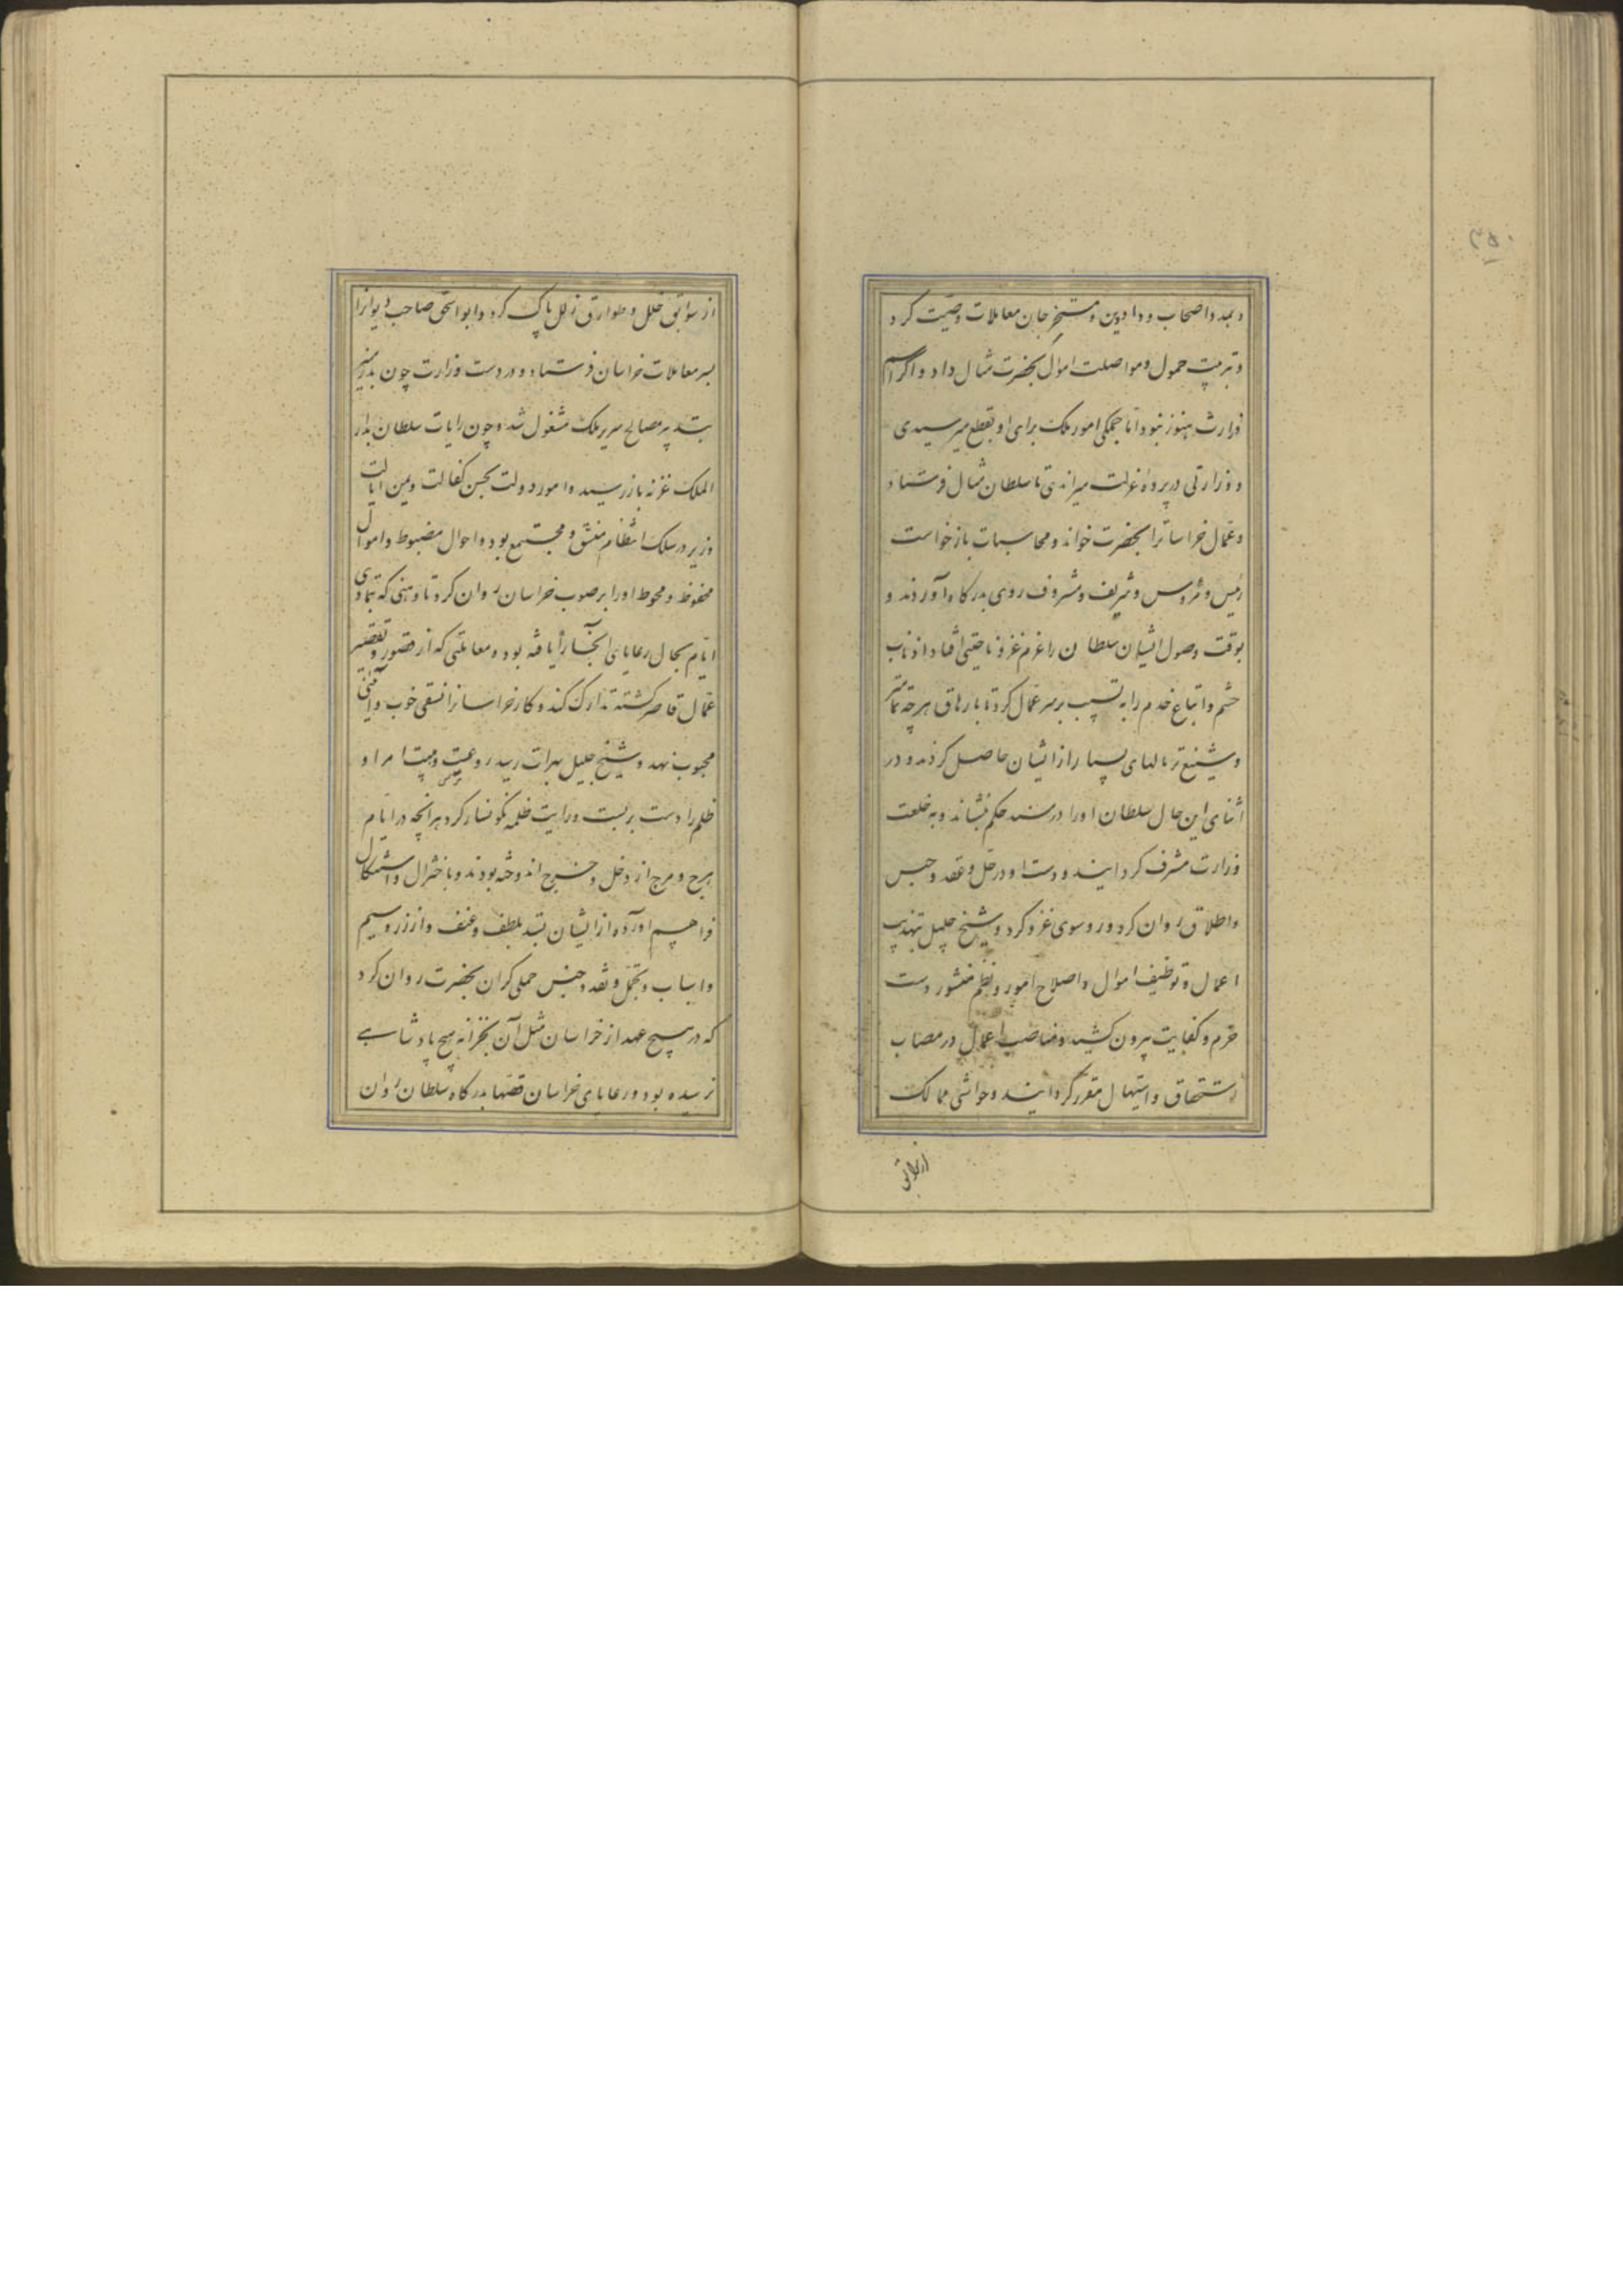 و بعمد و اصحاب دواوین و مستخرجان معاملات وصیت کرد
و بترتیب حمول و مواصلت اموال بحضرت مثال داد و اگر اسم
وزارت هنوز نبود اما جملگی امور ملک برای او بقطع میرسیدی
و وزارتی در پرده عزلت میراندی تا سلطان مثال فرستاد
و عمال خراسانرا بحضرت خواند و محاسبات بازخواست
رئیس و مرؤس و شریف و مشروف روی بدرگاه آوردند و
بوقت وصول ایشان سلطان را عزم غزو ناحیتی افتاد اذناب
حشم و اتباع خدم را به تسبیب بر سر عمال کرد تا بارهاق هرچه تمامتر
و شنیع‌تر مالهای بسیار از ایشان حاصل کردند و در
اثنای این حال سلطان او را در مسند حکم بنشاند و به خلعت
وزارت مشرف گردانید و دست او در حل و عقد و حبس
و اطلاق روان کرد و روسوی غزو کرد و شیخ جلیل بتهذیب
اعمال و توظیف اموال و اصلاح امور و نظم منشور دست
حزم و کفایت بیرون کشید و مناصب اعمال در مصاب
استحقاق و استیهال مقرر گردانید و حواشی ممالک
از سوابق خلل و طوارق زلل پاک کرد و ابو اسحق صاحب دیوانرا
بسر معاملات خراسان فرستاد و در دست وزارت چون بدر منیر
بتدبیر مصالح سریر ملک مشغول شد و چون رایات سلطان بدار
الملک غزنه باز رسید و امور دولت بحسن کفالت و یمن ایالت
وزیر در سلک انتظام متسق و مجتمع بود و احوال مضبوط و اموال
محفوظ و محوط او را بر صوب خراسان روان کرد تا وهنی که بتمادی
ایام بحال رعایای آنجا راه یافته بود و معاملتی که از قصور و تقصیر
عمال قاصر گشته تدارک کند و کار خراسانرا نسقی خوب و آئینی
محبوب نهد و شیخ جلیل بهرات رسید و رعیت و مهیت امرا و
ظلم را دست بربست و رایت ظلمه نگونسار کرد و هر آنچه در ایام
هرج و مرج از دخل و خرج اندوخته بودند و باختزال و استیکال
فراهم آورده از ایشان بستد بلطف و عنف و از زر و سیم
و اسباب و تجمل و نقد و جنس حملی گران بحضرت روان کرد
که در هیچ عهد از خراسان مثل آن بخزانه هیچ پادشاهی
نرسیده بود و رعایای خراسان قصها بدرگاه سلطان روان